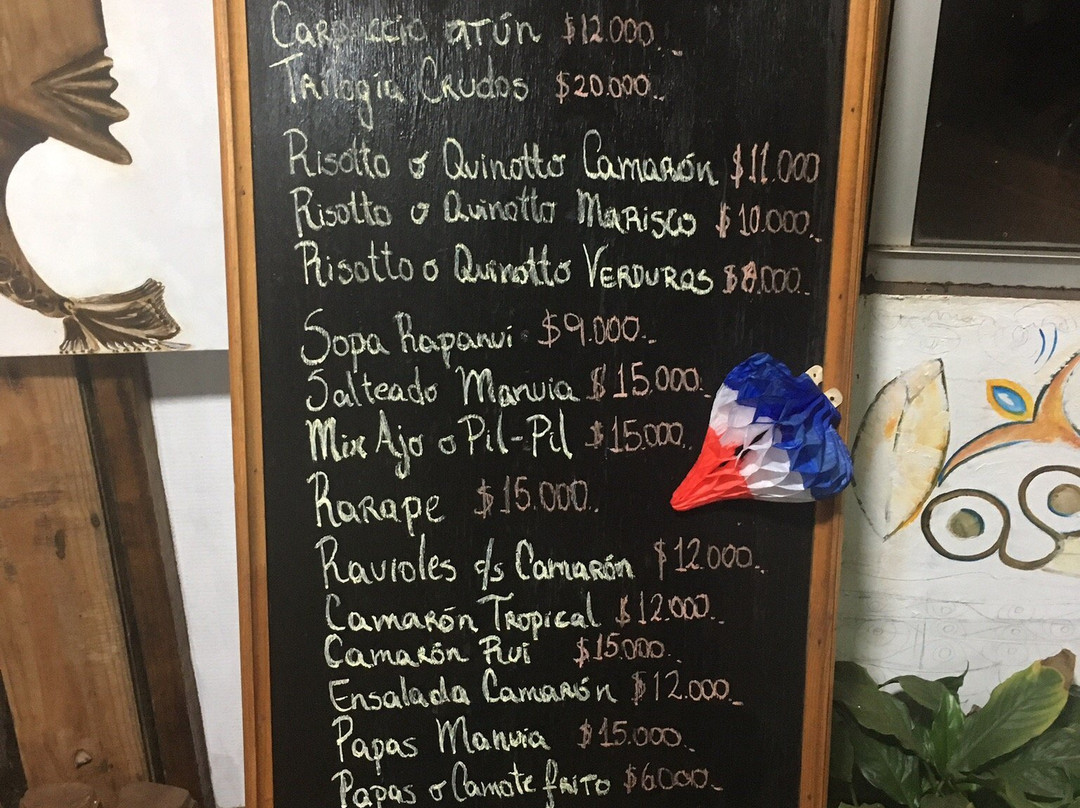 Carpaccio atún $12.000._
Trilogía Crudos $20.000._
Risotto o Quinotto Camarón $11.000
Risotto o Quinotto Marisco $10.000._
Risotto o Quinotto Verduras $8.000._
Sopa Rapanui $9.000._
Salteado Manuia $15.000._
Mix Ajo o Pil-Pil $15.000._
Rarape $15.000._
Ravioles c/s Camarón $12.000._
Camarón Tropical $12.000._
Camarón Rui $15.000._
Ensalada Camarón $12.000._
Papas Manuia $15.000._
Papas o Camote frito $6.000._